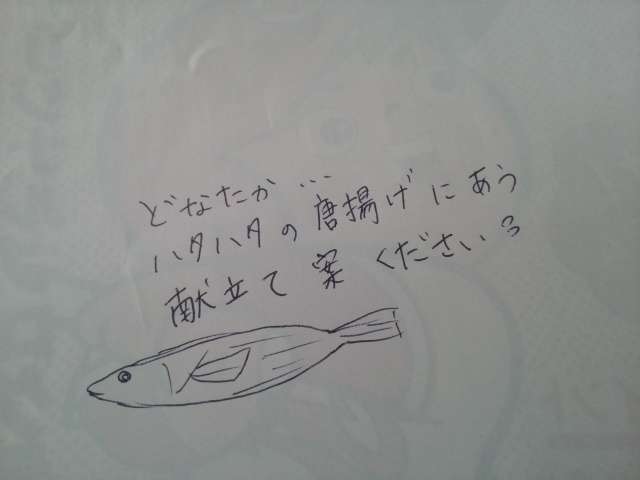 どなたか…
ハタハタの唐揚げにあう
献立て案ください